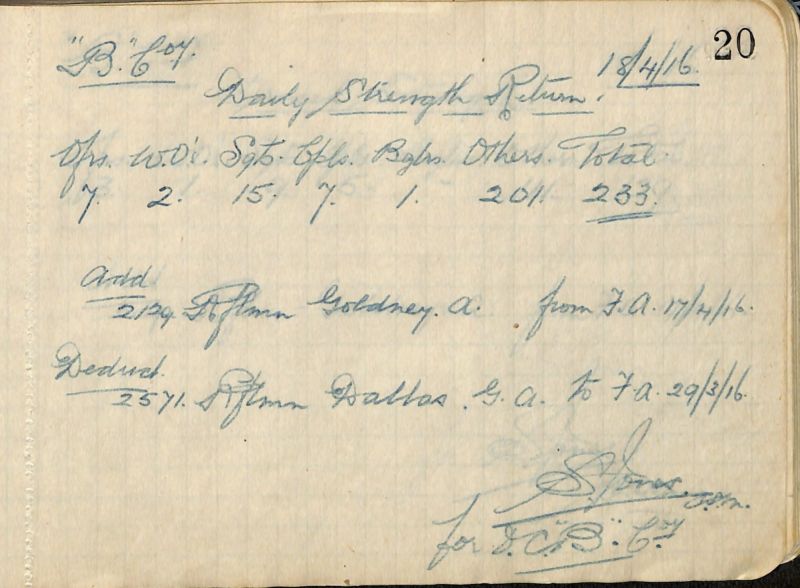 20
"B" Coy. 18/4/16.
Daily Strength Return.
Ofrs. W.O's. Sgts. Cpls. Bglrs. Others. Total.
7. 2. 15. 7. 1. 201. 233.
Add
2129. Rflmn Goldney. A. from F.A. 17/4/16.
Deduct.
2571. Rflmn Dallas. G. A. to F.A. 29/3/16.
S Jones.
for O.C. "B". Coy